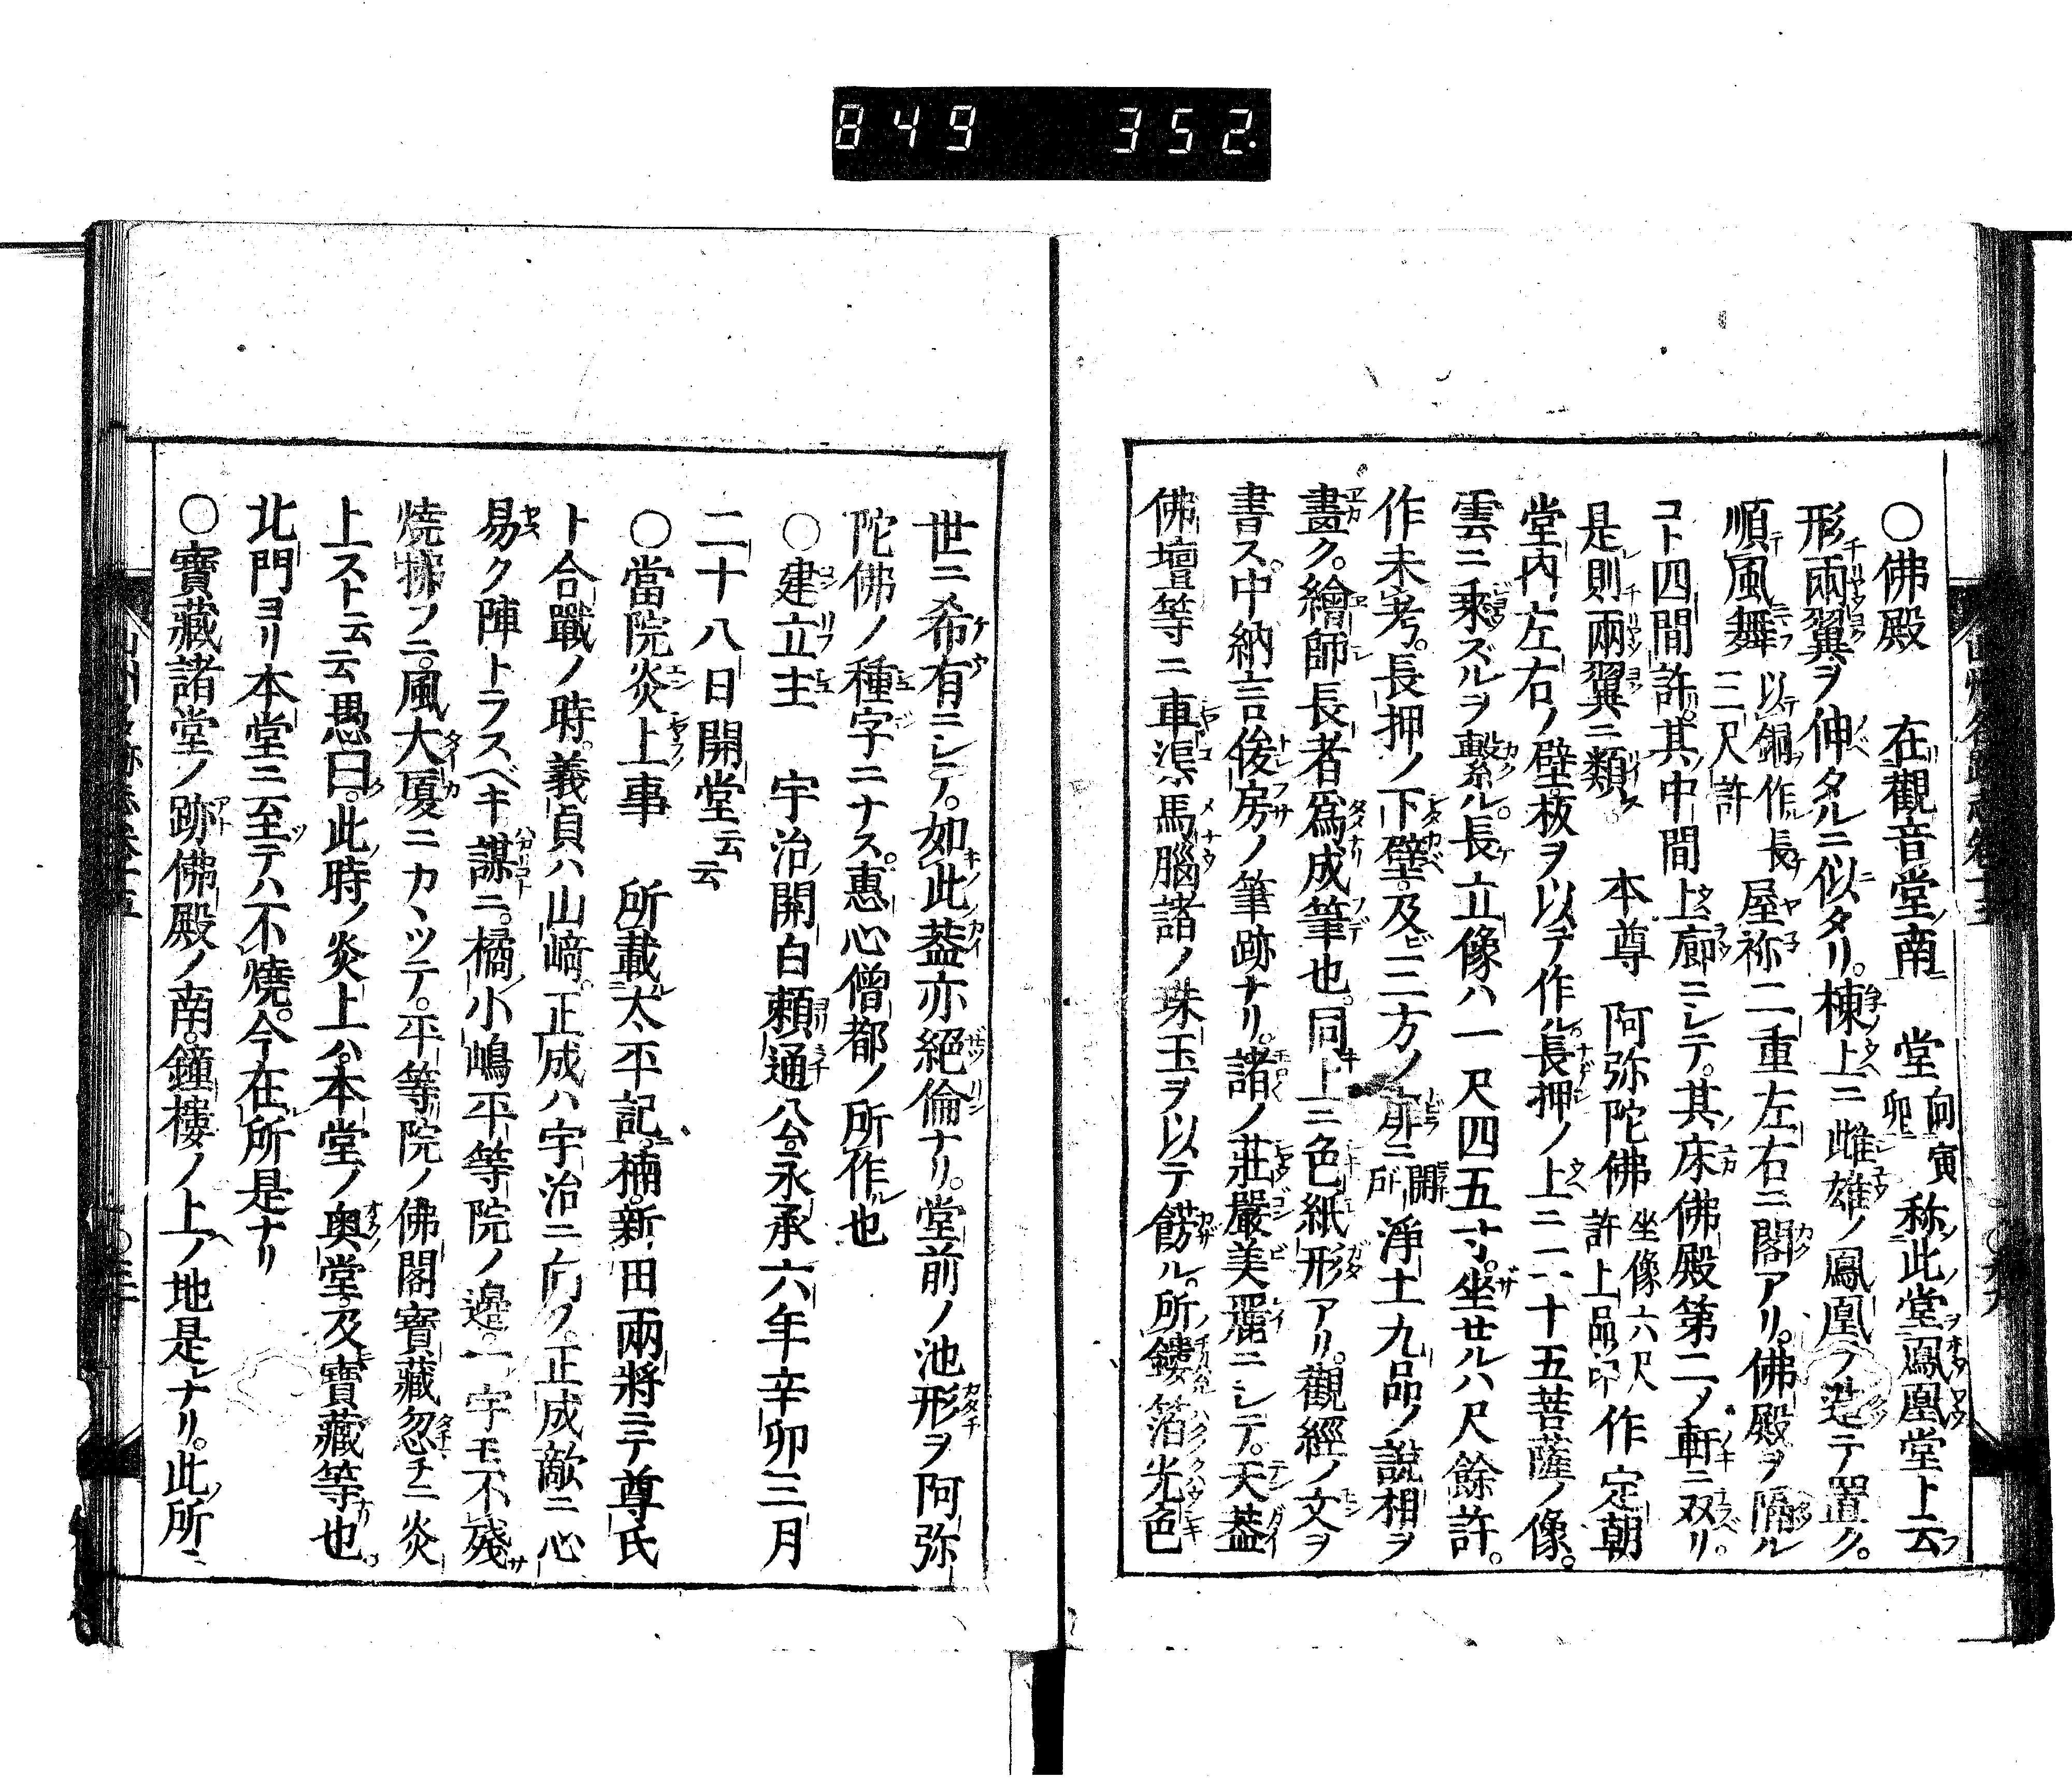 849 352.
○佛殿 在觀音堂南 堂向寅卯 称此堂鳳凰堂ト云
形兩翼ヲ伸タルニ似タリ。棟上ニ雌雄ノ鳳凰ヲ造テ置ク。
順風舞 以銅作長三尺許 屋祢二重左右ニ閣アリ。佛殿ヲ隔ル
コト四間許。其中間上廊ニシテ。其床佛殿第二ノ軒ニ双リ。
是則兩翼ニ類ス。 本尊 阿弥陀佛 坐像六尺許上品印 作定朝
堂内左右ノ壁。板ヲ以テ作ル。長押ノ上ニ二十五菩薩ノ像。
雲ニ乘ズルヲ繫ル。長立像ハ一尺四五寸。坐セルハ尺餘許。
作未考。長押ノ下壁。及ビ三方ノ扉ニ 開所 淨土九品ノ說相ヲ
畫ク。繪師長者為成筆也。同上ニ色紙形アリ。觀經ノ文ヲ
書ス。中納言俊房ノ筆跡ナリ。諸ノ莊嚴美麗ニシテ。天葢
佛壇等ニ車渠馬腦諸ノ珠玉ヲ以テ餝ル。所鏤箔光色
世ニ希有ニシテ。如此葢亦絕倫ナリ。堂前ノ池形ヲ阿弥
陀佛ノ種字ニナス。惠心僧都ノ所作也
○建立主 宇治關白賴通公。永承六年辛卯三月
二十八日開堂云云
○當院炎上事 所載太平記。楠。新田兩將ニテ尊氏
ト合戰ノ時。義貞ハ山﨑。正成ハ宇治ニ向フ。正成敵ニ心
易ク陣トラスベキ謀ニ。橘小嶋平等院ノ邊。一宇モ不殘
燒拂フニ。風大厦ニカヽツテ。平等院ノ佛閣寶藏忽チニ炎
上ストニ云云 愚曰。此時ノ炎上ハ。本堂ノ奥堂。及寶藏等也。
北門ヨリ本堂ニ至テハ不燒。今在所是ナリ
○寶藏諸堂ノ跡 佛殿ノ南。鐘樓ノ上ノ地是ナリ。此所ニ